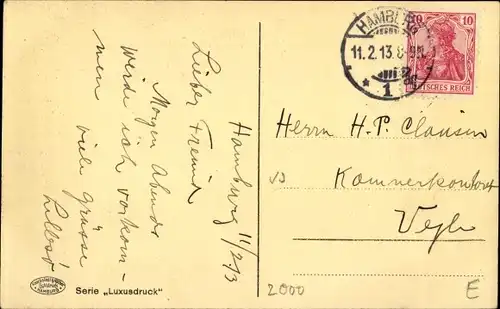 Hamburg 11/2/13
Lieber Freund
Morgen Abends
werde ich vorkom-
men viele Grüsse
HAMBURG
11.2.13.8-9N.
* 1
10 10
DEUTSCHES REICH
Herrn H. P. Clausen
Vejle
HAMBURG
Serie „Luxusdruck"
2000
E